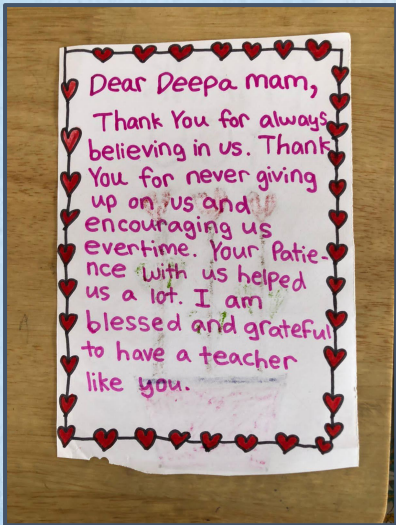 Dear Deepa mam,
Thank You for always
believing in us. Thank
You for never giving
up on us and
encouraging us
evertime. Your Patie-
nce with us helped
us a lot. I am
blessed and grateful
to have a teacher
like you.